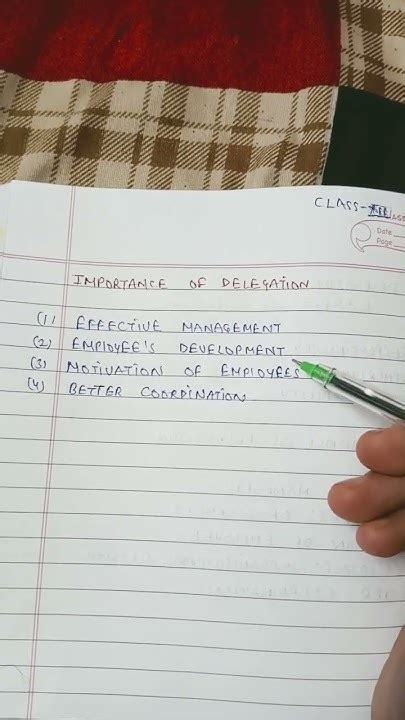 CLASS-
Date
Page
IMPORTANCE OF DELEGATION
(1) EFFECTIVE MANAGEMENT
(2) EMPLOYEE'S DEVELOPMENT
(3) MOTIVATION OF EMPLOYEES
(4) BETTER COORDINATION